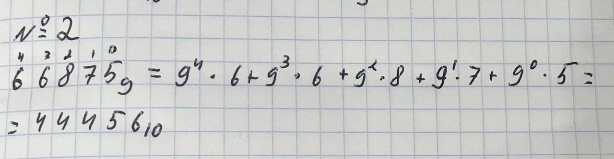 № 2
4 3 2 1 0
66875₉ = 9⁴ · 6 + 9³ · 6 + 9² · 8 + 9¹ · 7 + 9⁰ · 5 =
= 44456₁₀